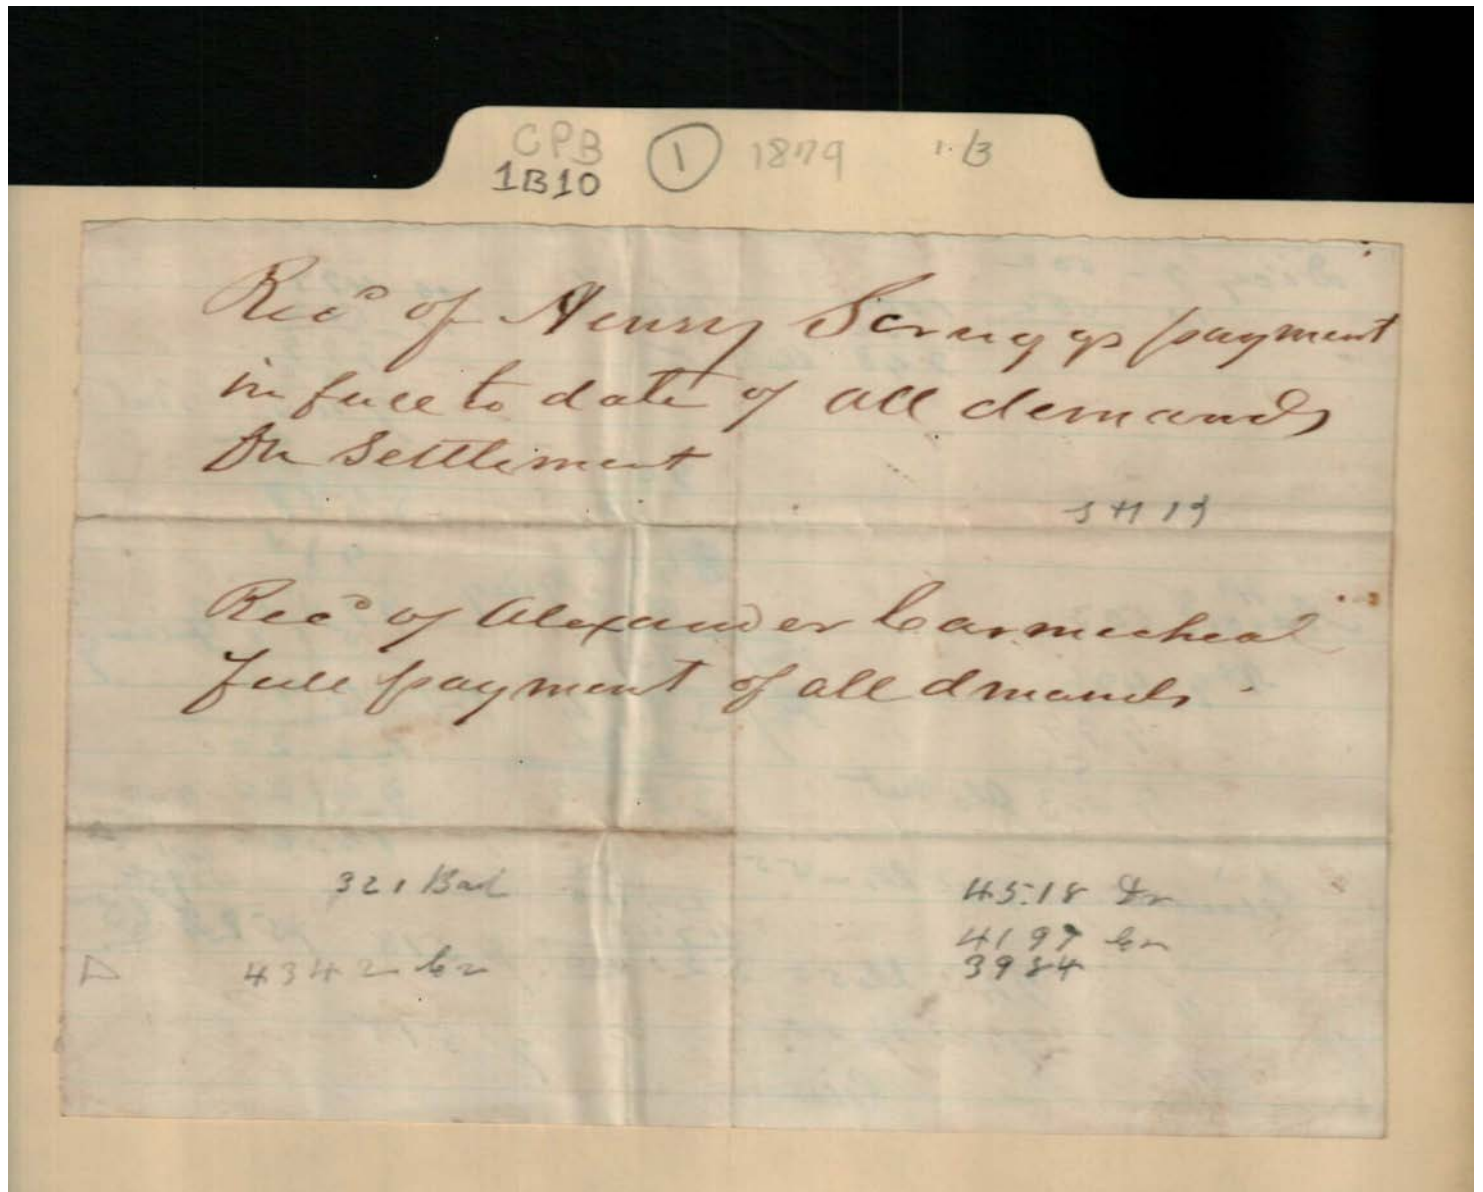 CPB 1 1879 1.13
1B10
Recd of Henry Scruggs payment
in full to date of all demands
On Settliment
Recd of Alexander Carmicheal
full payment of all dmands.
321 Bal
4518 Dr
4197 Cr
4342 Cr
3984